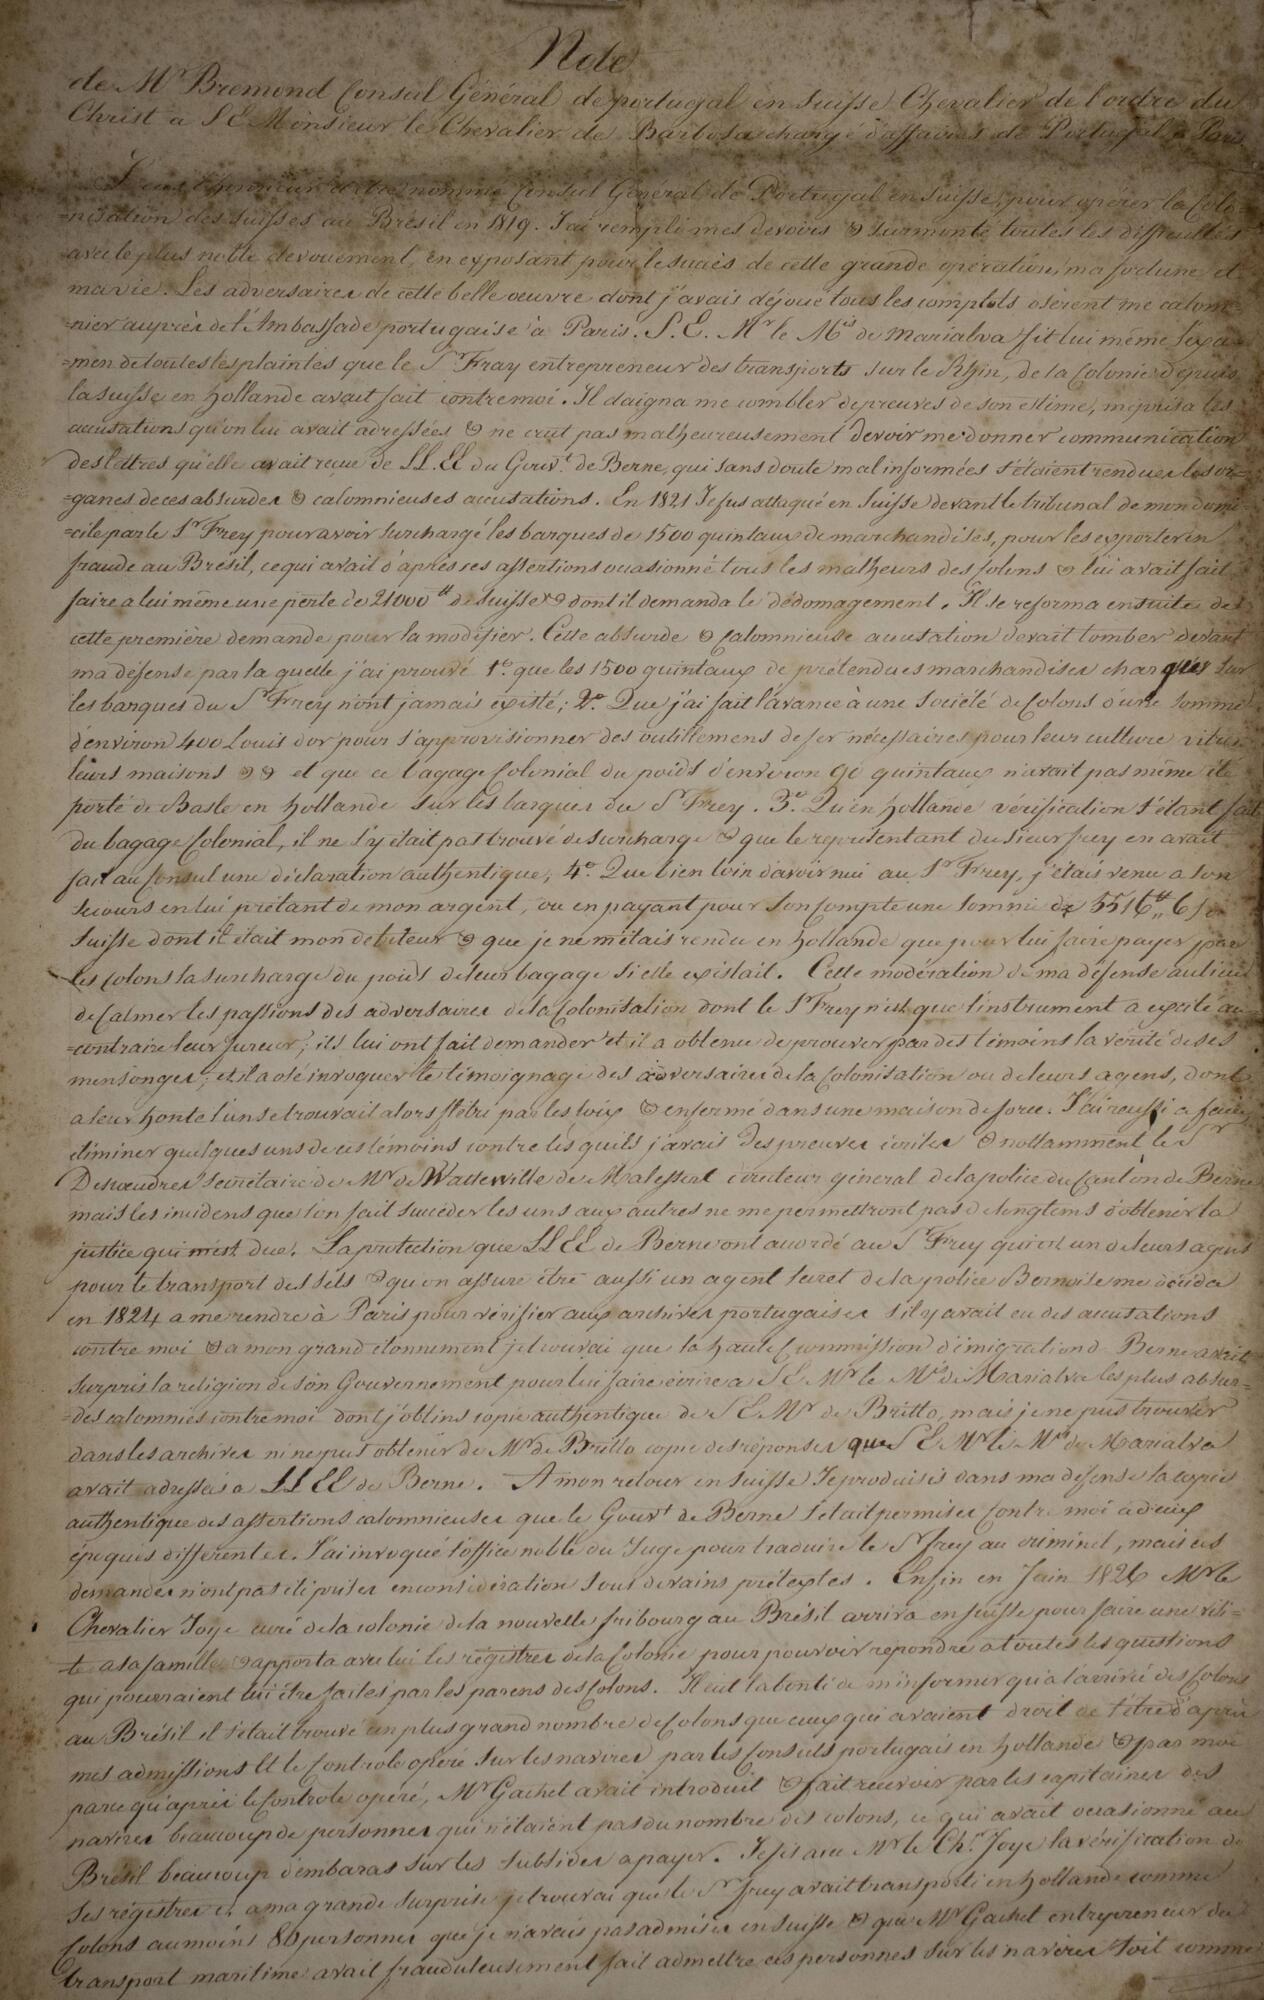 Note
de Mr Bremond Consul Général de portugal en Suisse Chevalier de l'ordre du
Christ a S E Monsieur le Chevalier de Barbosa chargé d'affaires de Portugal a Paris
J'eus l'honneur d'etre nommé Consul Général de Portugal en Suisse, pour opérer la Colo=
=nisation des Suisses au Brésil en 1819. J'ai rempli mes devoirs & surmonté toutes les difficultés
avec le plus noble devouement, en exposant pour le succès de cette grande opération, ma fortune et
ma vie. Les adversaires de cette belle oeuvre dont j'avais déjoué tous les complots osèrent me calom=
=nier auprès de l'Ambassade portugaise à Paris. S. E. Mr le Mis de Marialva fit lui même l'exa=
=men de toutes les plaintes que le Sr Fray entrepreneur des transports sur le Rhin, de la Colonie depuis
la suisse en Hollande avait fait contre moi. Il daigna me combler de preuves de son estime, méprisa les
accusations qu'on lui avait adressées & ne crut pas malheureusement devoir me donner communication
des lettres qu'elle avait reçue de LL. EE du Gouvt. de Berne, qui sans doute mal informées s'étaient rendues les or=
=ganes de ces absurdes & calomnieuses accusations. En 1821 Je fus attaqué en Suisse devant le tribunal de mon domi
=cile par le Sr Frey pour avoir surchargé les barques de 1500 quintaux de marchandises, pour les exporter en
fraude au Brésil, ce qui avait d'après ses assertions occasionné tous les malheurs des Colons & lui avait fait
faire a lui même une perte de 21000 tt de Suisse & dont il demanda le dédomagement. Il se reforma ensuite de
cette première demande pour la modifier. Cette absurde & Calomnieuse accusation devait tomber devant
ma défense par la quelle j'ai prouvé 1o. que les 1500 quintaux de prétendues marchandises chargées sur
les barques du Sr Frey n'ont jamais existé; 2o. Que j'ai fait l'avance à une Société de Colons d'une somme
d'environ 400 Louis d'or pour s'approvisionner des outillemens de fer nécessaires pour leur culture vitrer
leurs maisons & & et que ce bagage Colonial du poids d'environ 90 quintaux n'avait pas même été
porté de Basle en Hollande sur les barques du Sr Frey. 3o. Qu'en Hollande vérification s'étant fait
du bagage Colonial, il ne s'y était pas trouvé de surcharge & que le représentant du Sieur frey en avait
fait au Consul une déclaration authentique; 4o. Que bien loin d'avoir nui au Sr Frey, j'étais venu a son
secours en lui prêtant de mon argent, ou en payant pour son compte une somme de 5516 tt,, 6 s de
Suisse dont il était mon debiteur & que je ne m'étais rendu en Hollande que pour lui faire payer par
les Colons la surcharge du poids de leur bagage si elle existait. Cette modération de ma défense au lieu
de Calmer les passions des adversaires de la Colonisation dont le Sr Frey n'est que l'instrument a excité au
=contraire leur fureur; ils lui ont fait demander et il a obtenu de prouver par des témoins la vérité de ses
mensonges; et il a osé invoquer le témoignage des adversaires de la Colonisation ou de leurs agens, dont
a leur honte l'un se trouvait alors flétri par les loix & enfermé dans une maison de force. J'ai reussi a faire
éliminer quelques uns de ces témoins contre les quels j'avais des preuves écrites & nottamment le Sr
Desœudres secrétaire de Mr de Watteville de Malessert directeur général de la police du Canton de Berne
mais les incidens que l'on fait succéder les uns aux autres ne me permettront pas de longtems d'obtenir la
justice qui m'est due. La protection que LL EE de Berne ont accordé au Sr Frey qui est un de leurs agens
pour le transport des sels & qu'on assure être aussi un agent secret de la police Bernoise me décida
en 1824 a me rendre à Paris pour vérifier aux archives portugaises s'il y avait eu des accusations
contre moi & a mon grand étonnement je trouvai que la haute Commission d'émigration de Berne avait
surpris la religion de son Gouvernement pour lui faire écrire a S E Mr le Mis de Marialva les plus absur=
=des calomnies contre moi dont j'obtins copie authentique de S E Mr de Britto, mais je ne pus trouver
dans les archives ni ne pus obtenir de Mr de Britto copie des réponses que S E Mr le Mis de Marialva
avait adressés a LL EE de Berne. A mon retour en Suisse Je produisis dans ma défense la copie
authentique des assertions calomnieuses que le Gouvt de Berne s'était permises contre moi a deux
époques differentes. J'ai invoqué l'office noble du Juge pour traduire le Sr frey au criminel, mais ces
demandes n'ont pas été prises en considération sous de vains prétextes. Enfin en Juin 1826 Mr le
Chevalier Joye curé de la colonie de la nouvelle fribourg au Brésil arriva en Suisse pour faire une visi=
te a sa famille & apporta avec lui les régistres de la Colonie pour pouvoir repondre a toutes les questions
qui pourraient lui être faites par les parens des Colons. Il eut la bonté de m'informer qu'a l'arrivée des Colons
au Brésil il s'était trouvé un plus grand nombre de Colons que ceux qui avaient droit de l'être d'après
mes admissions et le Controle opéré sur les navires par les Consuls portugais en Hollande & par moi
parce qu'après le Controle opéré, Mr Gachet avait introduit & fait recevoir par les capitaines des
navires beaucoup de personnes qui n'étaient pas du nombre des colons, ce qui avait occasionné au
Brésil beaucoup d'embaras sur les subsides a payer. Je fis avec Mr le Chr. Joye la vérification de
ses régistres et a ma grande surprise je trouvai que le Sr frey avait transporté en Hollande comme
Colons au moins 80 personnes que je n'avais pas admises en Suisse & que Mr Gachet entrepreneur du
transport maritime avait frauduleusement fait admettre ces personnes sur les navires soit comme